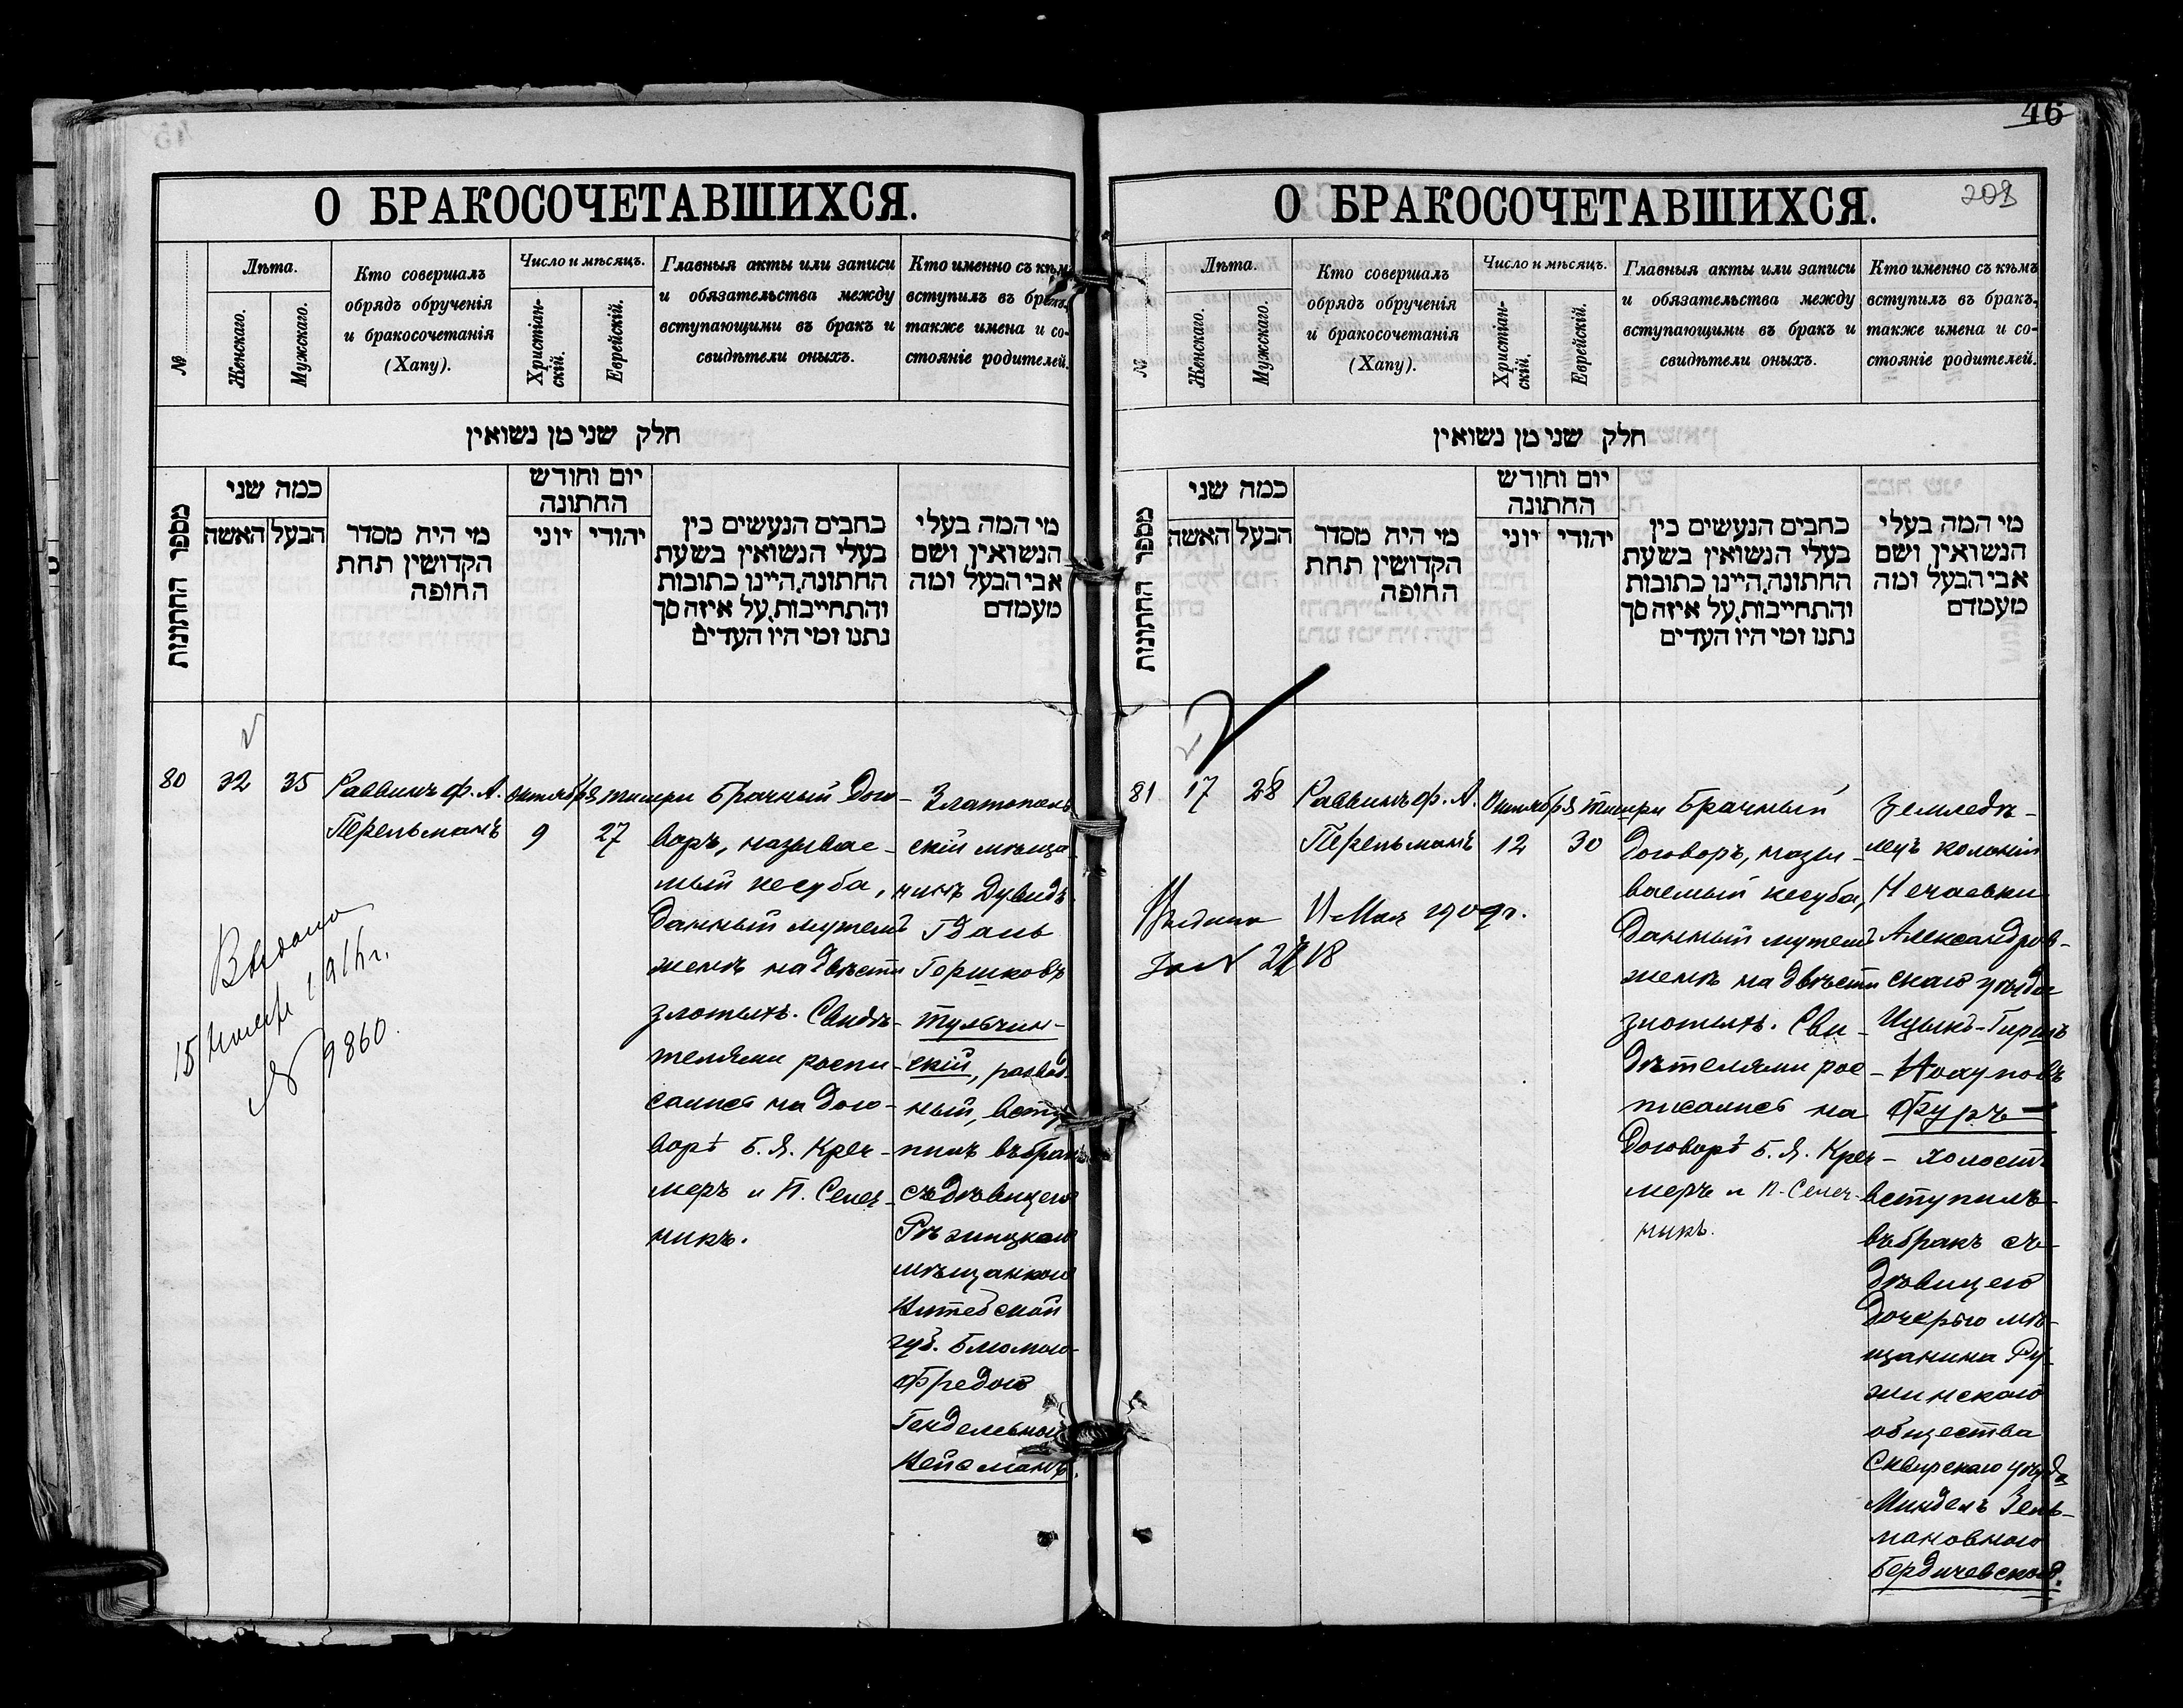 46
208
О БРАКОСОЧЕТАВШИХСЯ.
№
Лѣта.
Женскаго.
Мужскаго.
Кто совершалъ
обрядъ обрученія
и бракосочетанія
(Хапу).
Число и мѣсяцъ.
Христіан-
скій.
Еврейскій.
Главныя акты или записи
и обязательства между
вступающими въ бракъ и
свидѣтели оныхъ.
Кто именно съ кѣмъ
вступилъ въ бракъ,
также имена и со-
стояніе родителей.
חלק שני מן נשואין
מספר החתונות
כמה שני
האשה
הבעל
מי היה מסדר
הקדושין תחת
החופה
יום וחודש
החתונה
יוני
יהודי
כתבים הנעשים בין
בעלי הנשואין בשעת
החתונה, היינו כתובות
והתחייבות, על איזה סך
נתנו ומי היו העדים
מי המה בעלי
הנשואין ושם
אבי הבעל ומה
מעמדם
80
32
35
Раввинъ Ф. А.
Перельманъ
Октября
9
Тишри
27
Брачный дого-
воръ, называе-
мый кесуба,
данный мужемъ
женѣ на двѣсти
злотыхъ. Свидѣ-
телями роспи-
сались на дого-
ворѣ Б. Я. Креч-
меръ и П. Селеч-
никъ.
Златополь
скій мѣща-
нинъ Дувидъ
Гдаль
Гершковъ
Тульчин-
скій, развод-
ный, всту
пилъ въ бракъ
съ дѣвицею
Рѣжицкою
мѣщанкою
Витебской
губ. Блюмою-
Фредою
Гендельною
Нейсманъ.
Выдано
15 Ноября 1916 г.
№ 9860.
О БРАКОСОЧЕТАВШИХСЯ.
№
Лѣта.
Женскаго.
Мужскаго.
Кто совершалъ
обрядъ обрученія
и бракосочетанія
(Хапу).
Число и мѣсяцъ.
Христіан-
скій.
Еврейскій.
Главныя акты или записи
и обязательства между
вступающими въ бракъ и
свидѣтели оныхъ.
Кто именно съ кѣмъ
вступилъ въ бракъ,
также имена и со-
стояніе родителей.
חלק שני מן נשואין
מספר החתונות
כמה שני
האשה
הבעל
מי היה מסדר
הקדושין תחת
החופה
יום וחודש
החתונה
יוני
יהודי
כתבים הנעשים בין
בעלי הנשואין בשעת
החתונה, היינו כתובות
והתחייבות, על איזה סך
נתנו ומי היו העדים
מי המה בעלי
הנשואין ושם
אבי הבעל ומה
מעמדם
81
17
28
Раввинъ Ф. А.
Перельманъ
Октября
12
Тишри
30
Брачный
договоръ, назы-
ваемый кесуба,
данный мужемъ
женѣ на двѣсти
злотыхъ. Сви-
дѣтелями рос-
писались на
договорѣ Б. Я. Креч-
меръ и П. Селеч-
никъ.
Земледѣ-
лецъ колоніи
Нечаевки
Александров-
скаго уѣзда
Ицыкъ-Гиршъ
Нохумовъ
Фуръ
холостъ
вступилъ
въ бракъ съ
дѣвицею
дочерью мѣ-
щанина Ру-
жинскаго
общества
Сквирскаго уѣзда
Миндель Зель-
мановною
Бердичевской.
Выдано 11 Мая 1909 г.
за №